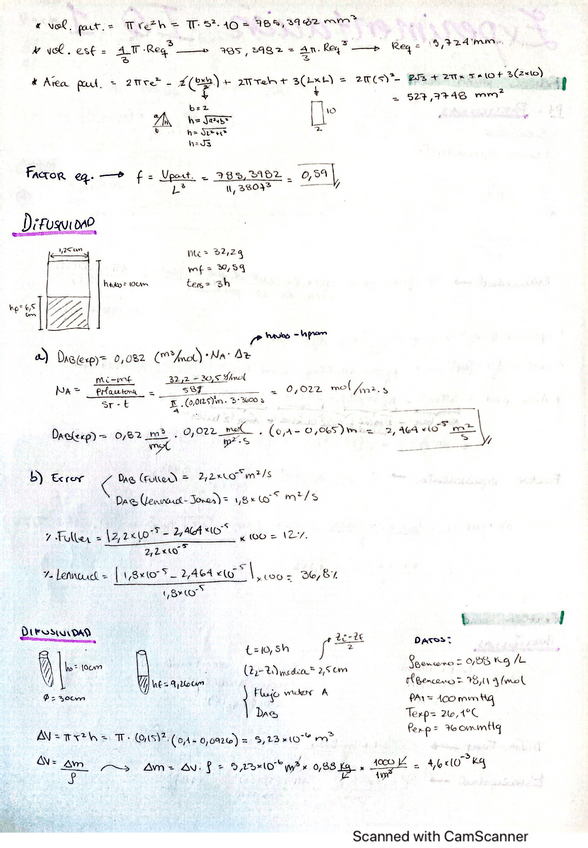 * vol. part. = π re² h = π · 5² · 10 = 785,3982 mm³
* vol. esf = 4/3 π · Req³ → 785,3982 = 4/3 π · Req³ → Req = 5,724 mm
* Area part. = 2πre² - 2(bxh/2) + 2πreh + 3(LxL) = 2π(5)² - 2√3 + 2π × 5 × 10 + 3(2x10)
= 527,7748 mm²
b = 2
h = √3
10
2
FACTOR eq. → f = Vpart. / L³ = 785,3982 / 11,3807³ = 0,59
DIFUSIVIDAD
1,25cm
mi = 32,2g
mf = 30,5g
hTubo = 10cm
tens = 3h
hf = 6,5 cm
hTubo - hprom
a) DAB(exp) = 0,082 (m³/mol) · NA · Δz
NA = (mi - mf / PMacetona) / (Sr · t) = (32,2 - 30,5 g/mol / 58g) / (π/4 · (0,0125)² m · 3 · 3600 s) = 0,022 mol/m²·s
DAB(exp) = 0,82 m³/mol · 0,022 mol/m²·s · (0,1 - 0,065) m = 2,464 x10⁻⁵ m²/s
b) Error
DAB (Fuller) = 2,2x10⁻⁵ m²/s
DAB (Lennard-Jones) = 1,8x10⁻⁵ m²/s
%Fuller = |2,2x10⁻⁵ - 2,464x10⁻⁵| / 2,2x10⁻⁵ x 100 = 12%
% Lennard = |1,8x10⁻⁵ - 2,464x10⁻⁵| / 1,8x10⁻⁵ x 100 = 36,8%
DIFUSIVIDAD
DATOS:
ho = 10cm
ø = 30cm
hf = 9,26cm
t = 10,5h
(Z₂-Z₁)media = 2,5cm
Flujo molar A
DAB
ρBenceno = 0,88 Kg/L
PMBenceno = 78,11 g/mol
PA1 = 100 mmHg
Texp = 26,1°C
Pexp = 760mmHg
ΔV = πr²h = π · (0,15)² · (0,1 - 0,0926) = 5,23x10⁻⁶ m³
ΔV = Δm/ρ → Δm = ΔV · ρ = 5,23x10⁻⁶ m³ x 0,88 kg/L x 1000 L/1m³ = 4,6x10⁻³ kg
Scanned with CamScanner